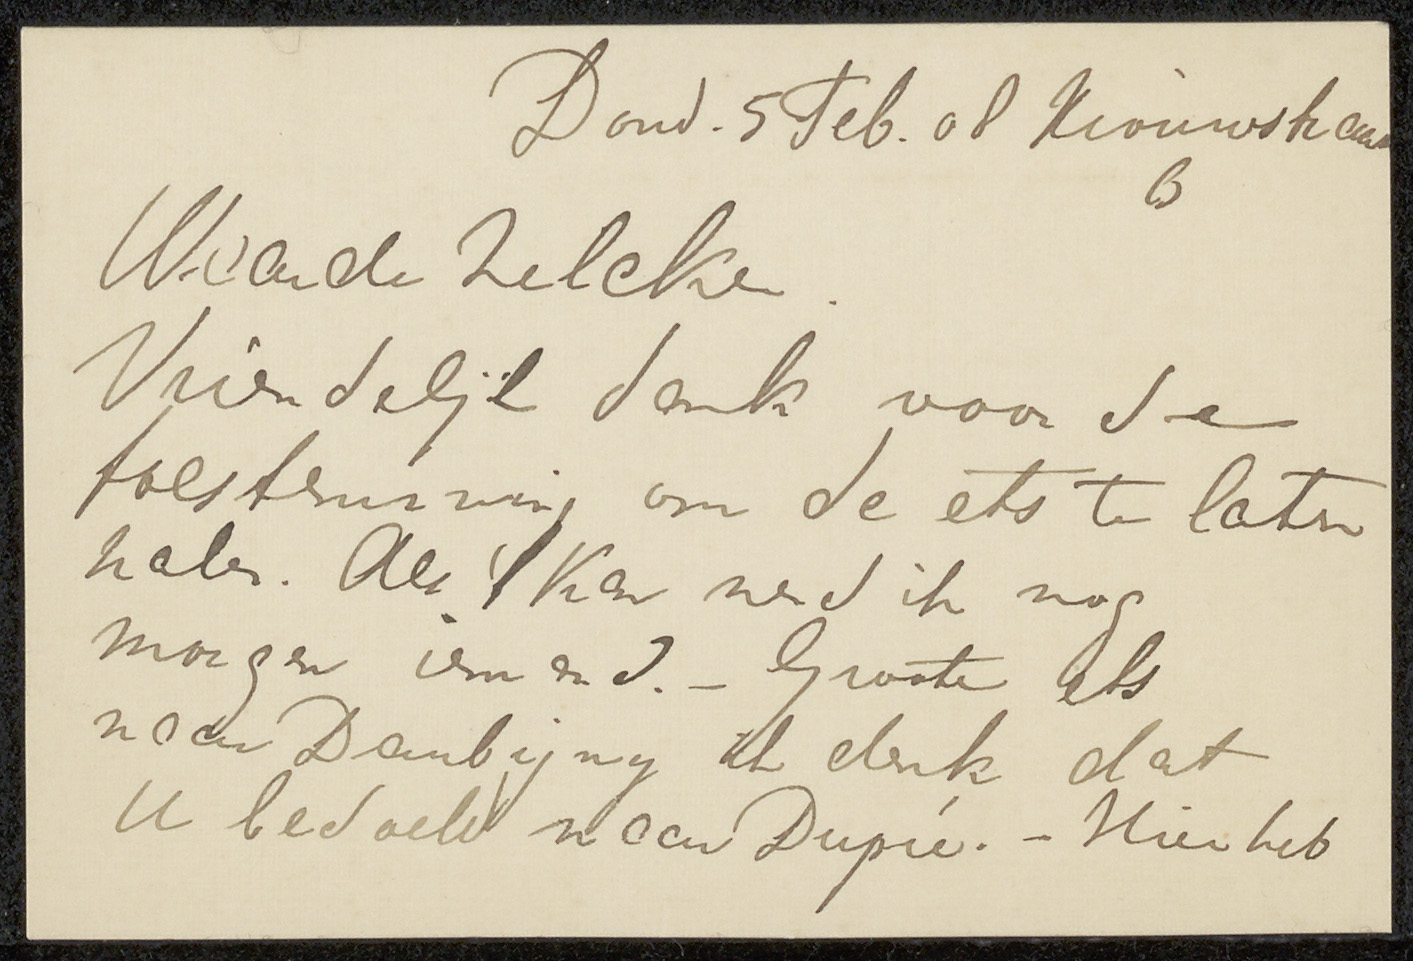 Dond. 5 Feb. 08
6
Waarde Zilcken.
Vriendelijk dank voor de
toestemming om de ets te laten
halen. Als ik kan zend ik nog
morgen iemand. – Groote ets
naar Daubigny ik denk dat
U bedoelt naar Dupré. – Hier heb